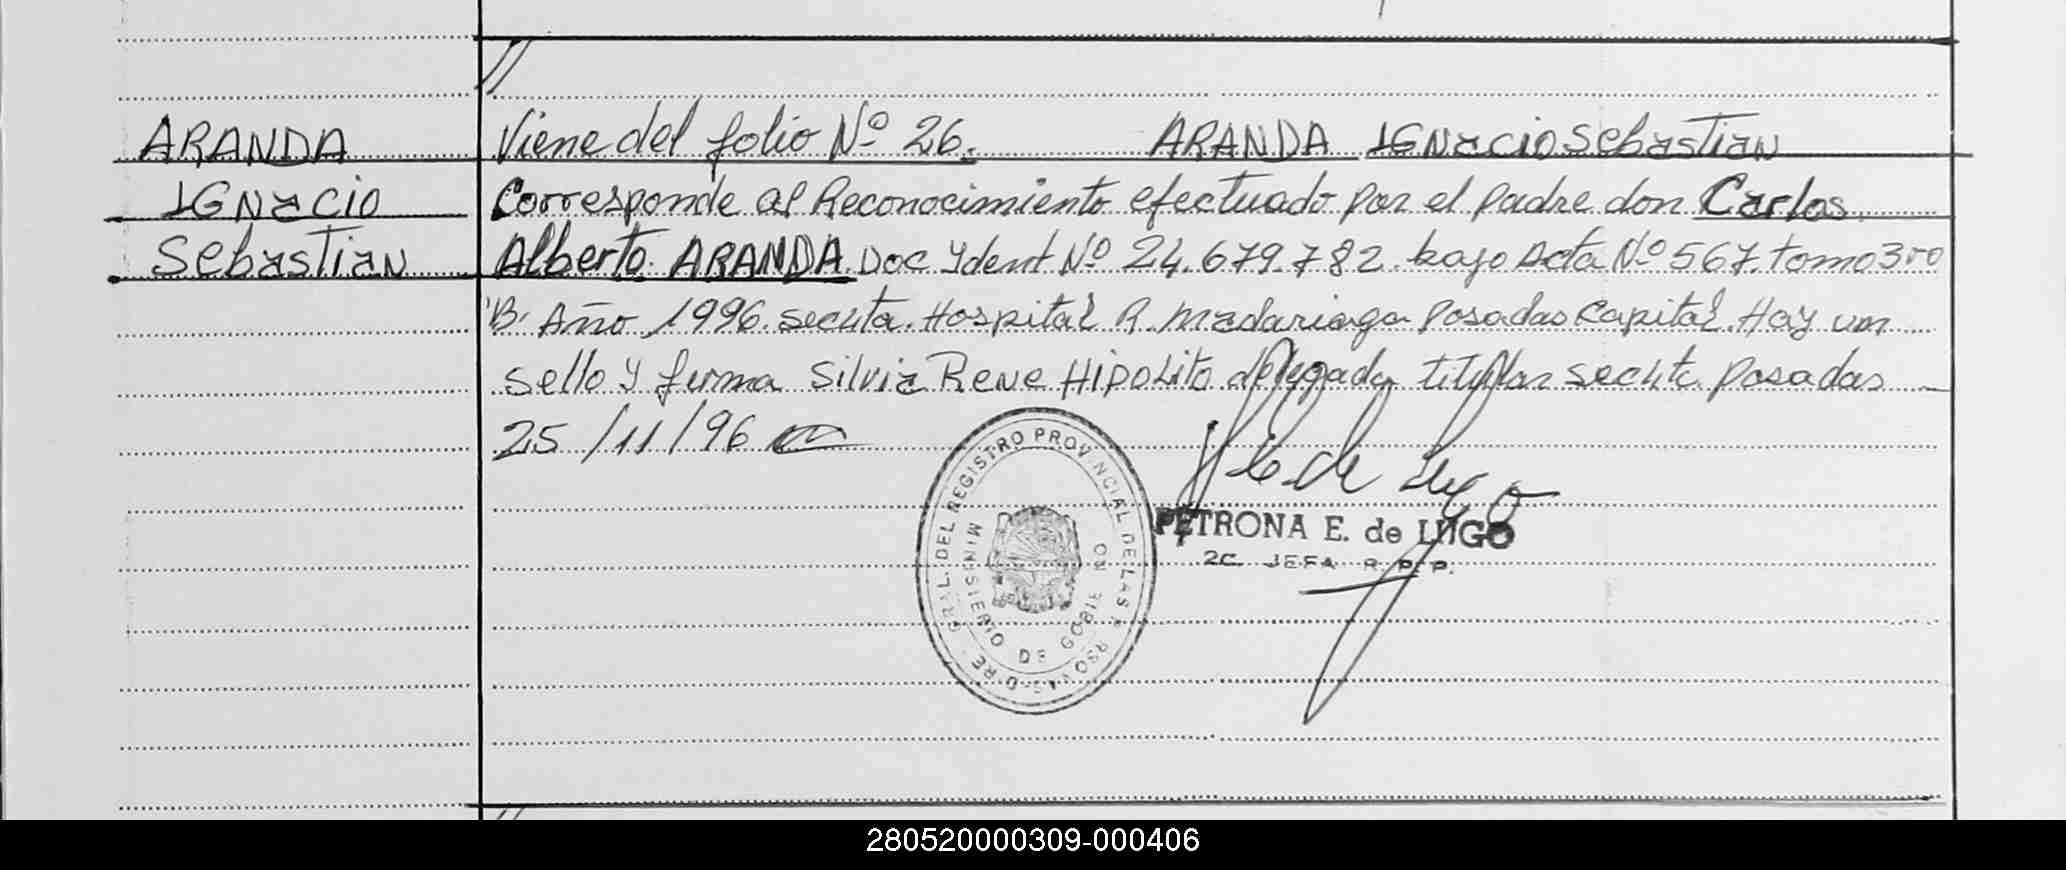 //
ARANDA
IGNACIO
Sebastian
Viene del folio Nº 26. ARANDA IGNacio Sebastian
Corresponde al Reconocimiento efectuado por el padre don Carlos
Alberto ARANDA Doc Ydent Nº 24.679.782. bajo Acta Nº 567. tomo 3ro
"B" Año 1996. Seccta. Hospital R. Madariaga Posadas Capital. Hay un
sello y firma Silvia Rene HIPOLito delegada titular seccta Posadas
25/11/96
DIRE. GRAL. DEL REGISTRO PROVINCIAL DE LAS PERSONAS
MINISTERIO DE GOBIERNO
PETRONA E. de LUGO
2º JEFA R. P. P.
280520000309-000406